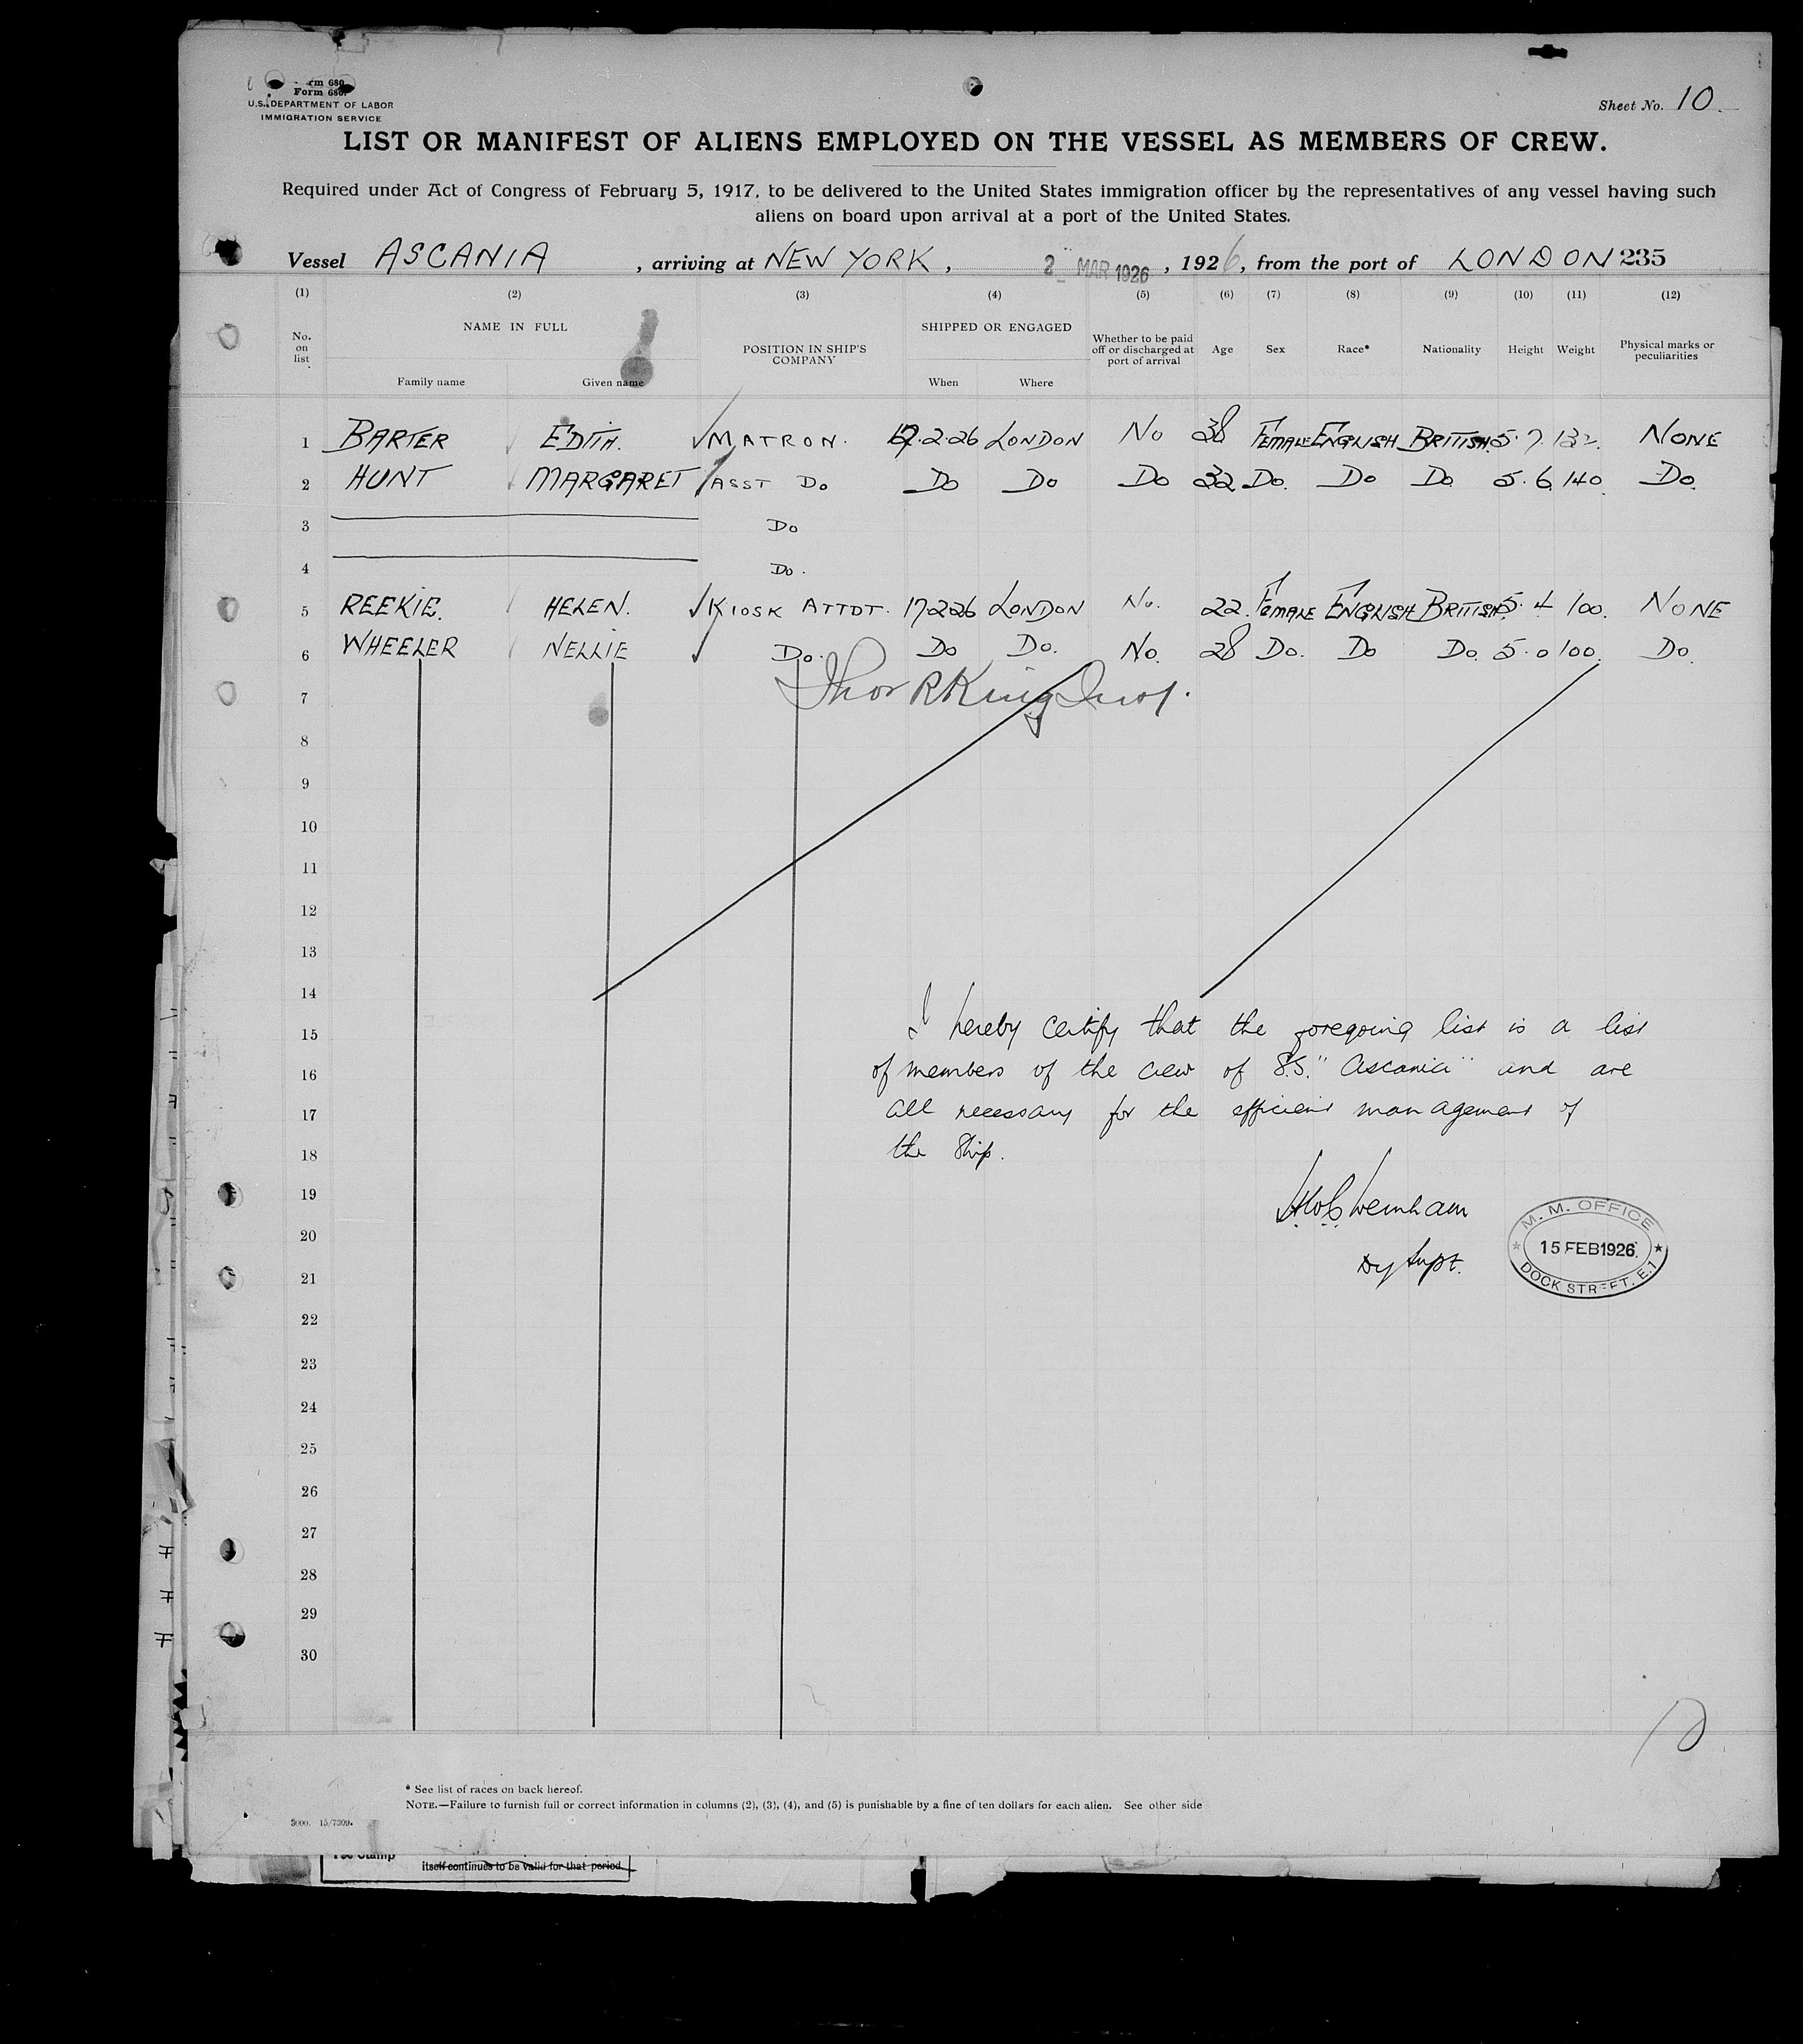 Form 680
U.S. DEPARTMENT OF LABOR
IMMIGRATION SERVICE
Sheet No. 10
LIST OR MANIFEST OF ALIENS EMPLOYED ON THE VESSEL AS MEMBERS OF CREW.
Required under Act of Congress of February 5, 1917, to be delivered to the United States immigration officer by the representatives of any vessel having such
aliens on board upon arrival at a port of the United States.
Vessel ASCANIA, arriving at NEW YORK, 2 MAR 1926, 1926, from the port of LONDON 235
(1) (2) (3) (4) (5) (6) (7) (8) (9) (10) (11) (12)
No. on list NAME IN FULL Family name Given name POSITION IN SHIP'S COMPANY SHIPPED OR ENGAGED When Where Whether to be paid off or discharged at port of arrival Age Sex Race* Nationality Height Weight Physical marks or peculiarities
1 BARTER EDITH. MATRON. 17.2.26 LONDON No 38 FEMALE ENGLISH BRITISH 5.7. NONE
2 HUNT MARGARET ASST Do Do Do Do 32 Do. Do Do 5.6. 140. Do.
3 Do
4 Do.
5 REEKIE. HELEN. KIOSK ATTDT. 17.2.26 LONDON No. 22. FEMALE ENGLISH BRITISH 5.4 100. NONE
6 WHEELER NELLIE Do. Do Do. No. 28 Do. Do Do. 5.0 100. Do.
7 Thos R King Insp.
8
9
10
11
12
13
14
15 I hereby certify that the foregoing list is a list
16 of members of the crew of S.S. "Ascania" and are
17 all necessary for the efficient management of
18 the Ship.
19 Wenham
20
M. M. OFFICE
15 FEB 1926
DOCK STREET. E.1
21 Dy Supt.
22
23
24
25
26
27
28
29
30
* See list of races on back hereof.
NOTE.—Failure to furnish full or correct information in columns (2), (3), (4), and (5) is punishable by a fine of ten dollars for each alien. See other side
3000. 15/7309.
itself continues to be valid for that period.